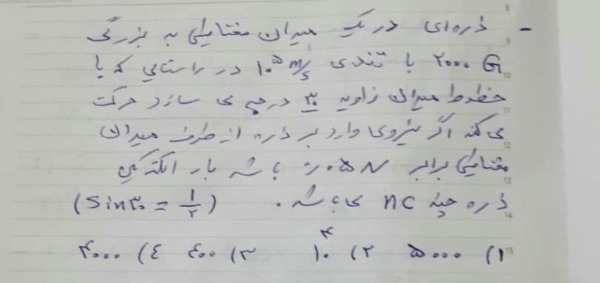 - ذره‌ای در یک میدان مغناطیسی به بزرگی
۲۰۰۰ G با تندی ۱۰^۵ m/s در راستایی که با
خطوط میدان زاویه ۳۰ درجه می سازد حرکت
می کند اگر نیروی وارد بر ذره از طرف میدان
مغناطیسی برابر ۰٫۰۵ N باشد بار الکتریکی
ذره چند nC می باشد. (Sin۳۰ = ۱/۲)
۱) ۵۰۰۰ ۲) ۱۰^۴ ۳) ۴۰۰ ۴) ۴۰۰۰